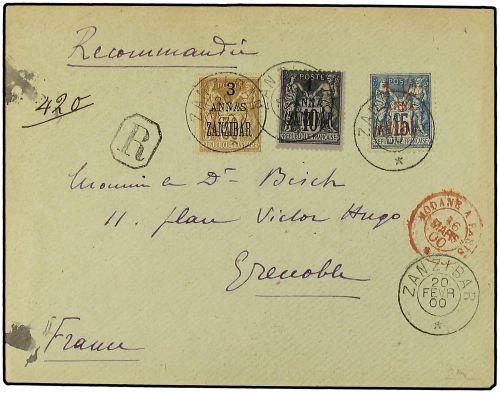 Recommandée
420
R
POSTE
3
ANNAS
ZANZIBAR
POSTE
ANNA
10
POSTE
ANNA
15
Monsieur le Dr Bisch
11. place Victor Hugo
Grenoble
France
MODANE A PARIS
16
MARS
00
ZANZIBAR
20
FEVR
00
*